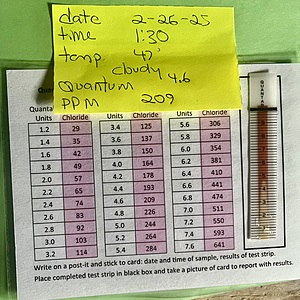 date 2-26-25
time 1:30
temp 47°
cloudy
Quantum 4.6
PPM 209
Quanta
Units Chloride Units Chloride Units Chloride
1.2 29 3.4 125 5.6 306
1.4 35 3.6 137 5.8 329
1.6 42 3.8 150 6.0 354
1.8 49 4.0 164 6.2 381
2.0 57 4.2 178 6.4 410
2.2 65 4.4 193 6.6 441
2.4 74 4.6 209 6.8 474
2.6 83 4.8 226 7.0 511
2.8 92 5.0 244 7.2 550
3.0 103 5.2 264 7.4 593
3.2 114 5.4 284 7.6 641
Write on a post-it and stick to card: date and time of sample, results of test strip.
Place completed test strip in black box and take a picture of card to report with results.